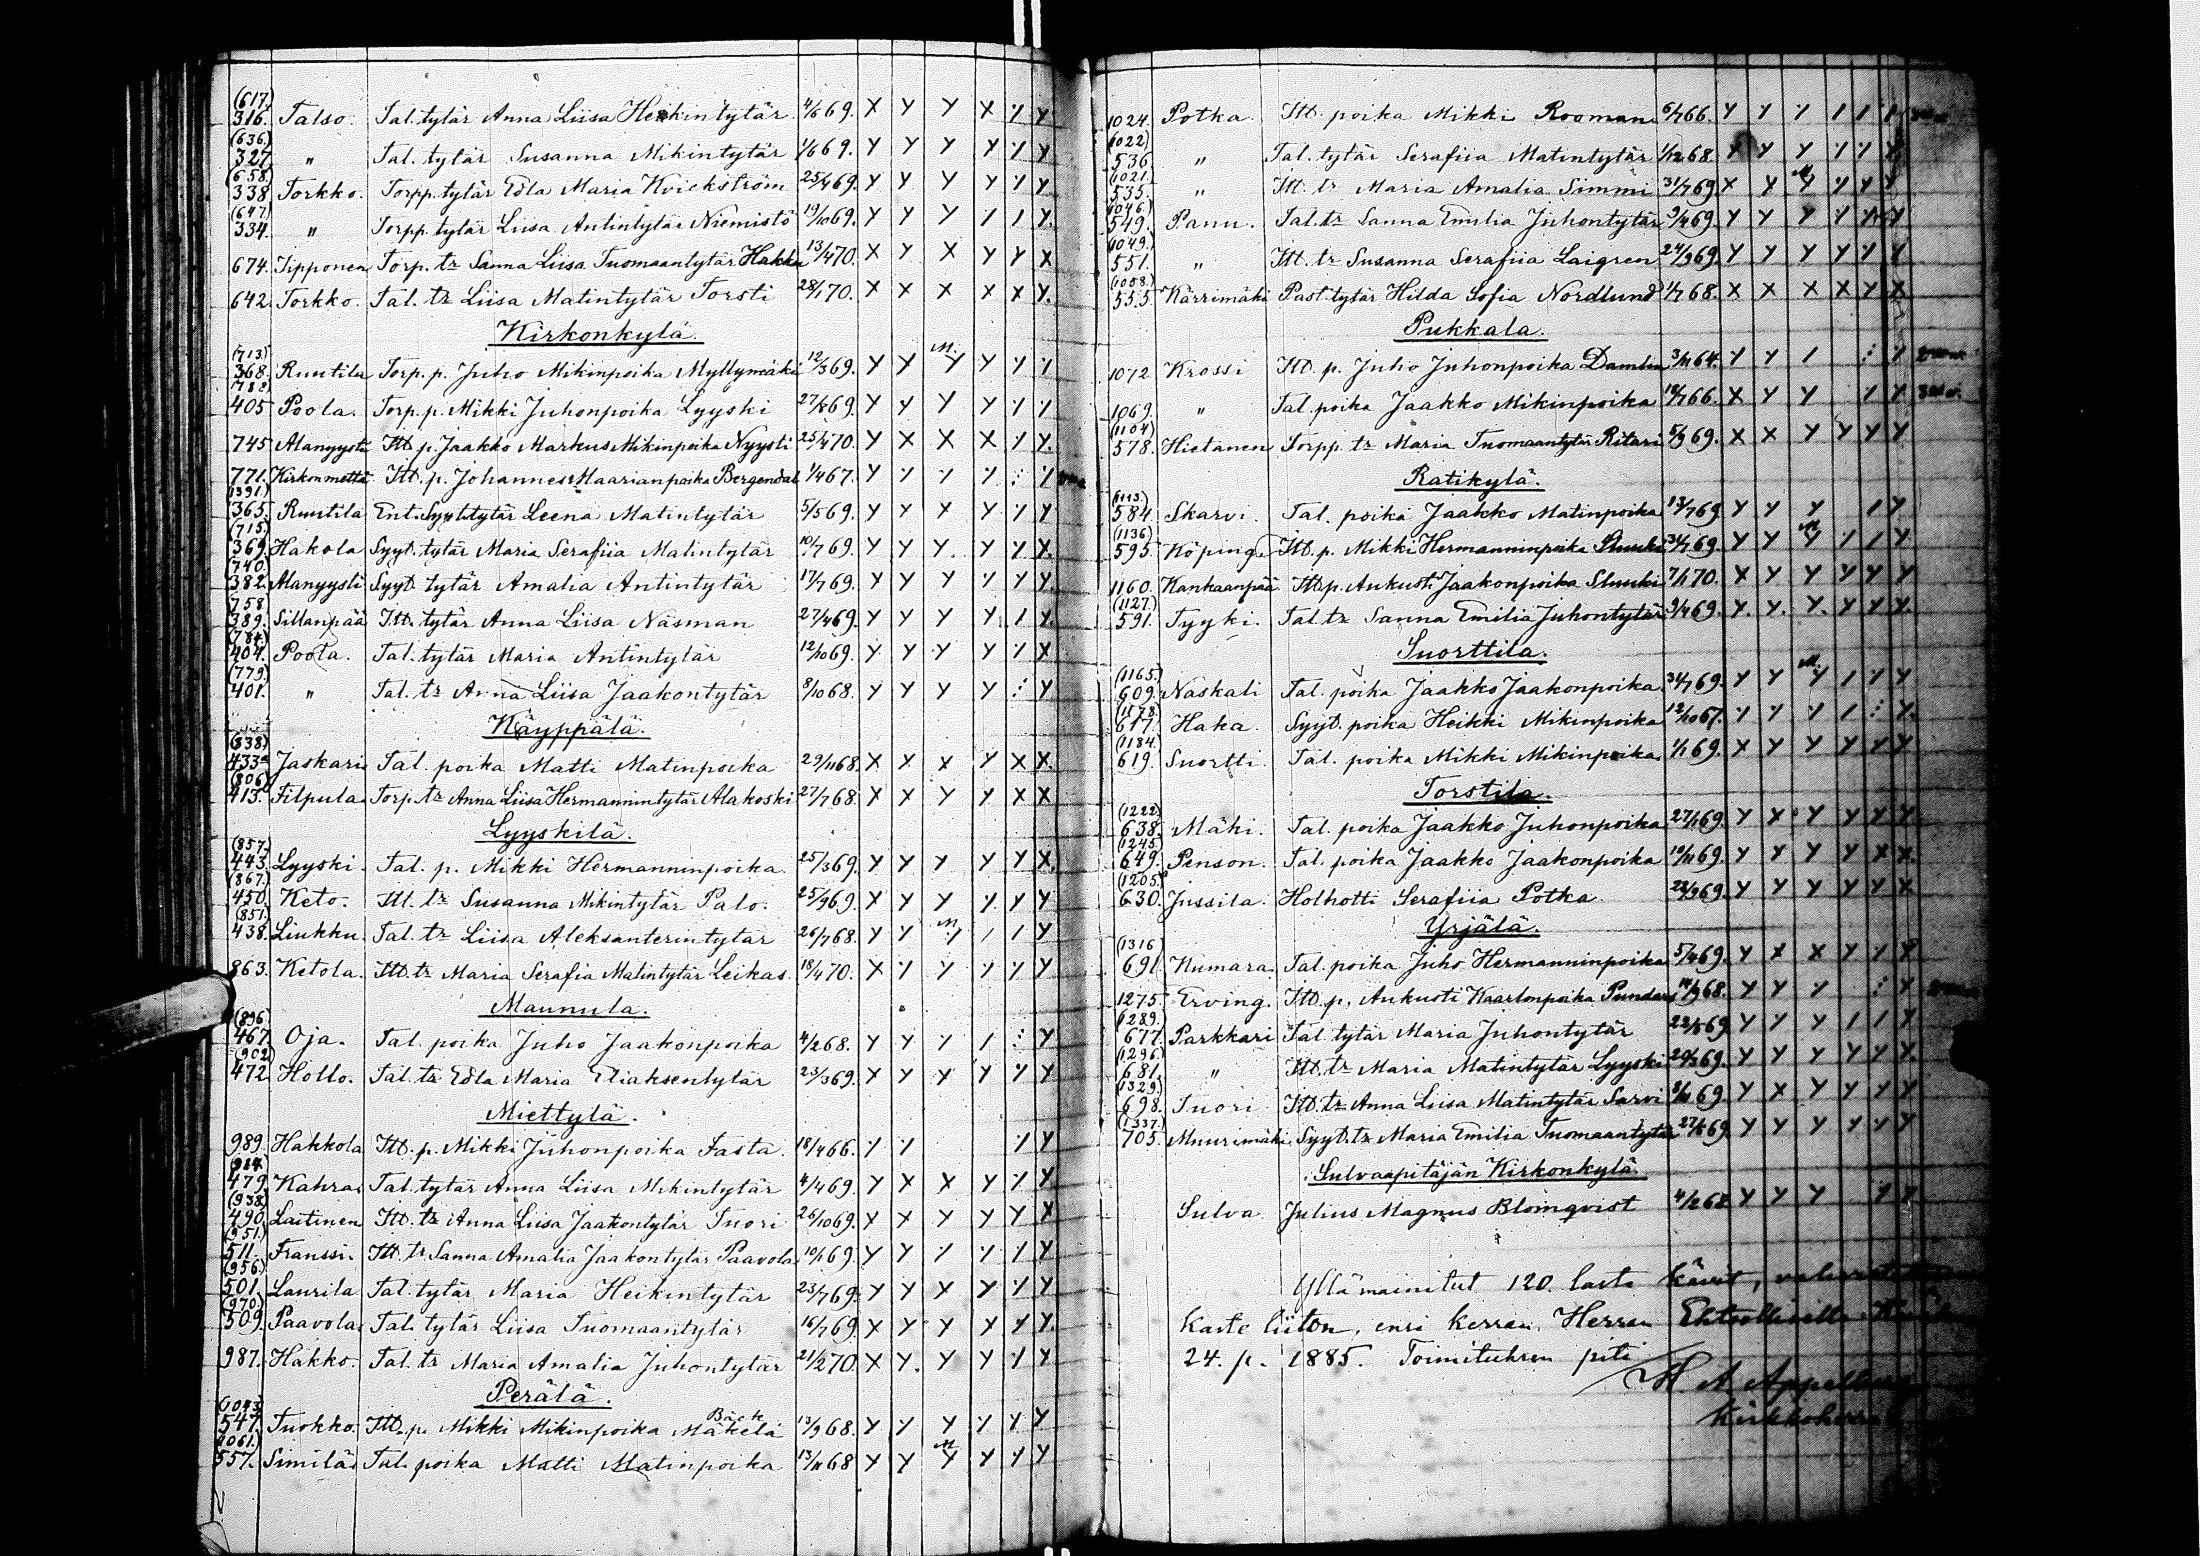 (617.)
316. Talso. Tal. tytär Anna Liisa Heikintytär. 4/6 69. X Y Y X Y Y.
(636)
327 " Tal. tytär Susanna Mikintytär 1/6 69. Y Y Y Y Y Y
(658.)
338 Torkko. Torpp. tytär Edla Maria Kvickström 25/4 69. Y Y Y Y Y Y
(647.)
334. " Torpp. tytär Liisa Antintytär Niemistö 19/10 69. Y Y Y / / Y.
674. Tipponen Torp. tr Sanna Liisa Tuomaantytär Hakka 13/4 70. X Y X Y Y X
642. Torkko. Tal. tr Liisa Matintytär Torsti 28/1 70. X X X X X Y.
Kirkonkylä.
(713.)
368. Ruutila Torp. p. Juho Mikinpoika Myllymäki 12/3 69. Y Y M Y Y Y Y
405 Poola. Torp. p. Mikki Juhonpoika Lyyski 27/8 69. Y Y Y Y Y Y
745 Alanyysti Itll. p. Jaakko Markus Mikinpoika Nyysti 25/4 70. Y X X X Y Y.
771. Kirkonmetta Itll. p. Johannes Maarianpoika Bergendal 1/4 67. Y Y Y Y : Y
(391.)
365. Ruutila Ent. Syyt. tytär Leena Matintytär 5/5 69. Y Y X Y Y Y
(715.)
369. Hakola Syyt. tytär Maria Serafiia Matintytär 10/7 69. Y Y Y. Y Y Y.
(740.)
382. Alanyysti Syyt. tytär Amalia Antintytär 17/7 69. Y Y Y Y Y Y.
(758.)
389. Sillanpää Itll. tytär Anna Liisa Näsman 27/4 69. Y Y Y Y / Y.
(784.)
404. Poola. Tal. tytär Maria Antintytär 12/10 69. Y Y Y Y Y X
(779.)
401. " Tal. tr Anna Liisa Jaakontytär 8/10 68. Y Y Y Y : Y
Käyppälä.
(838)
433. Jaskari Tal. poika Matti Matinpoika 29/11 68. X X X Y X X.
(806)
413. Filpula Torp. tr Anna Liisa Hermannintytär Alakoski 27/7 68. X X Y Y X X
Lyyskilä.
(857.)
443. Lyyski. Tal. p. Mikki Hermanninpoika 25/3 69. Y Y Y Y Y X.
(867.)
450. Keto. Itl. tr Susanna Mikintytär Palo. 25/9 69. X Y Y Y Y Y
(851.)
438. Liukku. Tal. tr Liisa Aleksanterintytär 26/7 68. Y Y M Y / / Y
863. Ketola. Itll. tr Maria Serafia Matintytär Leikas. 18/4 70. X Y Y Y Y Y
Maunula.
(896)
467. Oja. Tal. poika Juho Jaakonpoika 4/2 68. Y Y Y / : Y
(902)
472 Hollo. Tal. tr Edla Maria Eliaksentytär 23/3 69. X Y X Y Y Y
Miettylä.
989. Hakkola Itll. p. Mikki Juhonpoika Fasta. 18/4 66. Y Y Y Y
479. Kahra. Tal. tytär Anna Liisa Mikintytär 4/4 69. Y X X Y Y Y
(938.)
490. Laitinen Itll. tr Anna Liisa Jaakontytär Tuori 26/10 69. Y X Y Y Y X
(951.)
511. Franssi. Itll. tr Sanna Amalia Jaakontytär Paavola 10/1 69. Y Y Y Y Y Y
(956)
501. Laurila Tal. tytär Maria Heikintytär 23/7 69. Y Y X Y Y Y
(970.)
509. Paavola Tal. tytär Liisa Tuomaantytär 16/7 69. X Y Y X Y Y.
987. Hakko. Tal. tr Maria Amalia Juhontytär 21/2 70. X Y. Y Y Y Y
Perälä.
(1043)
547. Tuokko. Itll. p. Mikki Mikinpoika Mäkelä Bäck 13/9 68. Y Y Y Y Y Y
(1061.)
557. Similä. Tal. poika Matti Matinpoika 13/11 68 Y Y M Y Y Y Y
1024. Potka. Itll. poika Mikki Rooman 6/7 66. Y Y Y / / Y
(1022)
536. " Tal. tytär Serafiia Matintytär 1/12 68. Y Y Y Y Y X
(1021.)
535. " Itl. tr Maria Amalia Simmi 31/7 69. X Y M Y Y Y Y
(1046.)
549. Panu. Tal. tr Sanna Emilia Juhontytär 9/4 69. Y Y Y Y Y Y
(1049.)
551. " Itll. tr Susanna Serafiia Laigren 24/9 69. Y Y Y Y Y Y
(1058.)
555 Kärrimäki Past. tytär Hilda Sofia Nordlund 1/7 68. X X X X Y X
Pukkala.
1072 Krossi Itll. p. Juho Juhonpoika Damlin 3/11 64. Y Y / : Y
1069. " Tal. poika Jaakko Mikinpoika 18/7 66. X Y Y Y Y
(1104)
578. Hietanen Torpp. tr Maria Tuomaantytär Ritari 5/9 69. X X Y Y Y Y
Ratikylä.
(1113.)
584 Skarvi. Tal. poika Jaakko Matinpoika 13/7 69 Y Y Y / Y
(1136)
595. Köping. Itll. p. Mikki Hermanninpoika 31/7 69. Y Y M Y / / Y
1160. Kankaanpää Itll. p. Aukusti Jaakonpoika 7/1 70. X Y Y Y Y Y
(1127.)
591. Tyyki. Tal. tr Sanna Emilia Juhontytär 9/4 69. Y. Y. Y. Y Y Y.
Suorttila.
(1165.)
609. Naskali Tal. poika Jaakko Jaakonpoika 31/7 69. Y Y M Y / Y Y
(1178.)
617. Haka. Syyt. poika Heikki Mikinpoika 12/10 67. Y Y Y / : Y.
(1184.)
619. Suortti Tal. poika Mikki Mikinpoika. 1/1 69. X Y Y Y Y Y
Torstila.
(1222)
638. Mäki. Tal. poika Jaakko Juhonpoika 27/1 69. Y X Y Y Y Y
(1245.)
649. Penson. Tal. poika Jaakko Jaakonpoika 10/11 69. Y Y Y Y X X.
(1205.)
630. Jussila. Holhotti Serafiia Potka. 28/9 69. Y Y Y Y Y X
Yrjälä.
(1316)
691. Kumara. Tal. poika Juho Hermanninpoika 5/4 69. Y X X Y Y Y
1275. Erving. Itll. p. Aukusti Kaarlonpoika 14/9 68. Y Y Y : Y
(1289.)
677. Parkkari Tal. tytär Maria Juhontytär 22/5 69. Y Y Y / / Y
(1296.)
681. " Itll. tr Maria Matintytär Lyyski 20/3 69. Y Y Y Y Y Y.
(1329.)
698. Tuori Itll. tr Anna Liisa Matintytär Sarvi 8/11 69. Y X Y Y Y Y
(1337.)
705. Muurimäki. Syyt. tr Maria Emilia Tuomaantytär 27/6 69. Y Y Y Y Y Y
Sulvaapitäjän Kirkonkylä.
Sulva. Julius Magnus Blomqvist 4/2 68 Y Y Y Y Y
Yllä mainitut 120. lasta kävit,
kaste liiton, ensi kerran, Herran Ehtoollisella
24. p. 1885. Toimituksen piti
H. A. Appelberg
Kirkkoherra